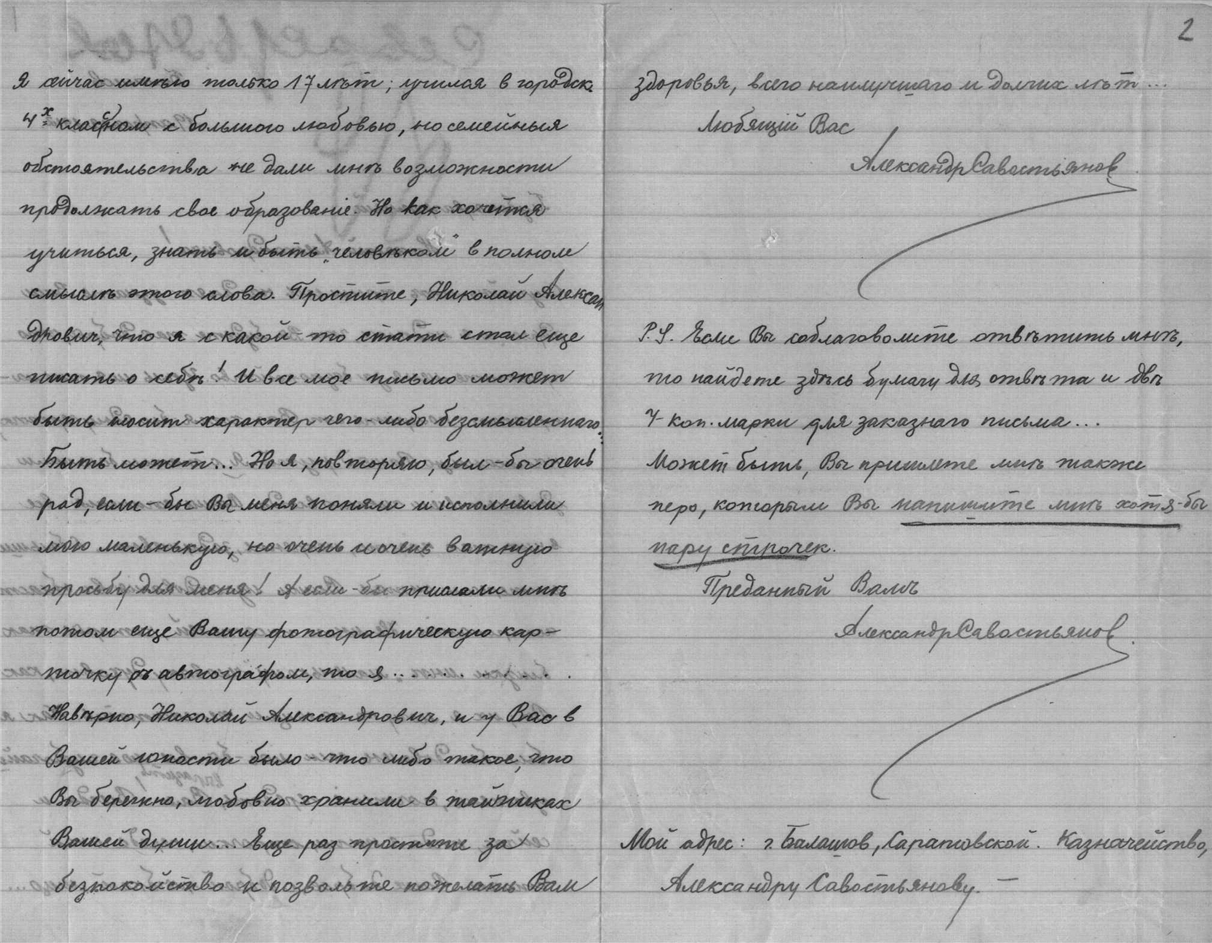 Я сейчас имѣю только 17 лѣт; учился в городск.
4х классном с большою любовью, но семейныя
обстоятельства не дали мнѣ возможности
продолжать свое образованiе. Но как хочется
учиться, знать и быть „человѣком" в полном
смыслѣ этого слова. Простите, Николай Алексан
дрович, что я с какой то стати стал еще
писать о себѣ! И все мое письмо может
быть носит характер чего-либо безсмысленнаго...
Быть может... Но я, повторяю, был-бы очень
рад, если-бы Вы меня поняли и исполнили
мою маленькую, но очень и очень важную
просьбу для меня! А если-бы прислали мнѣ
потом еще Вашу фотографическую кар-
точку съ автографом, то я.. . . . . . .
Навѣрно, Николай Александрович, и у Вас в
Вашей юности было что либо такое, что
Вы бережно, любовно хранили в тайниках
Вашей души... Еще раз простите за
безпокойство и позвольте пожелать Вам
2
здоровья, всего наилучшаго и долгих лѣт...
Любящiй Вас
Александр Савостьянов
P.S. Если Вы соблаговолите отвѣтить мнѣ,
то найдете здѣсь бумагу для отвѣта и двѣ
7-коп. марки для заказного письма...
Может быть, Вы пришлете мнѣ также
перо, которым Вы напишите мнѣ хотя-бы
пару строчек.
Преданный Вамъ
Александр Савостьянов.
Мой адрес: г. Балашов, Саратовской. Казначейство,
Александру Савостьянову.—